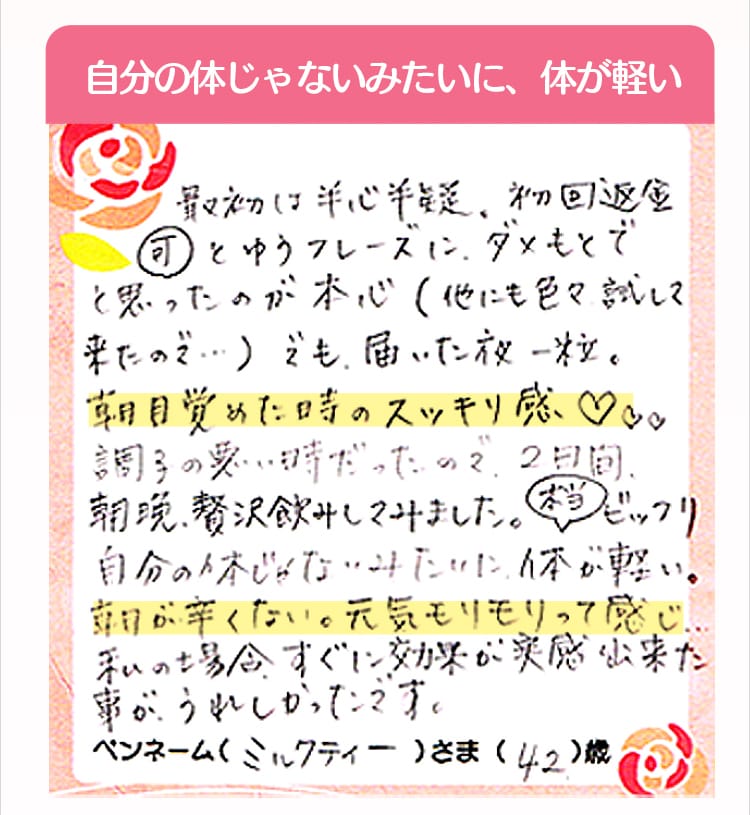 自分の体じゃないみたいに、体が軽い
最初は半心半疑、初回返金
可とゆうフレーズに、ダメもとで
と思ったのが本心(他にも色々試して
来たので…)でも、届いた夜一粒。
朝目覚めた時のスッキリ感、♡♡♡
調子の悪い時だったので、2日間、
朝晩、贅沢飲みしてみました。本当ビックリ
自分の体じゃないみたいに、体が軽い。
朝が辛くない。元気モリモリって感じ…
私の場合、すぐに効果が実感出来た
事が、うれしかったです。
ペンネーム(ミルクティー)さま(42)歳